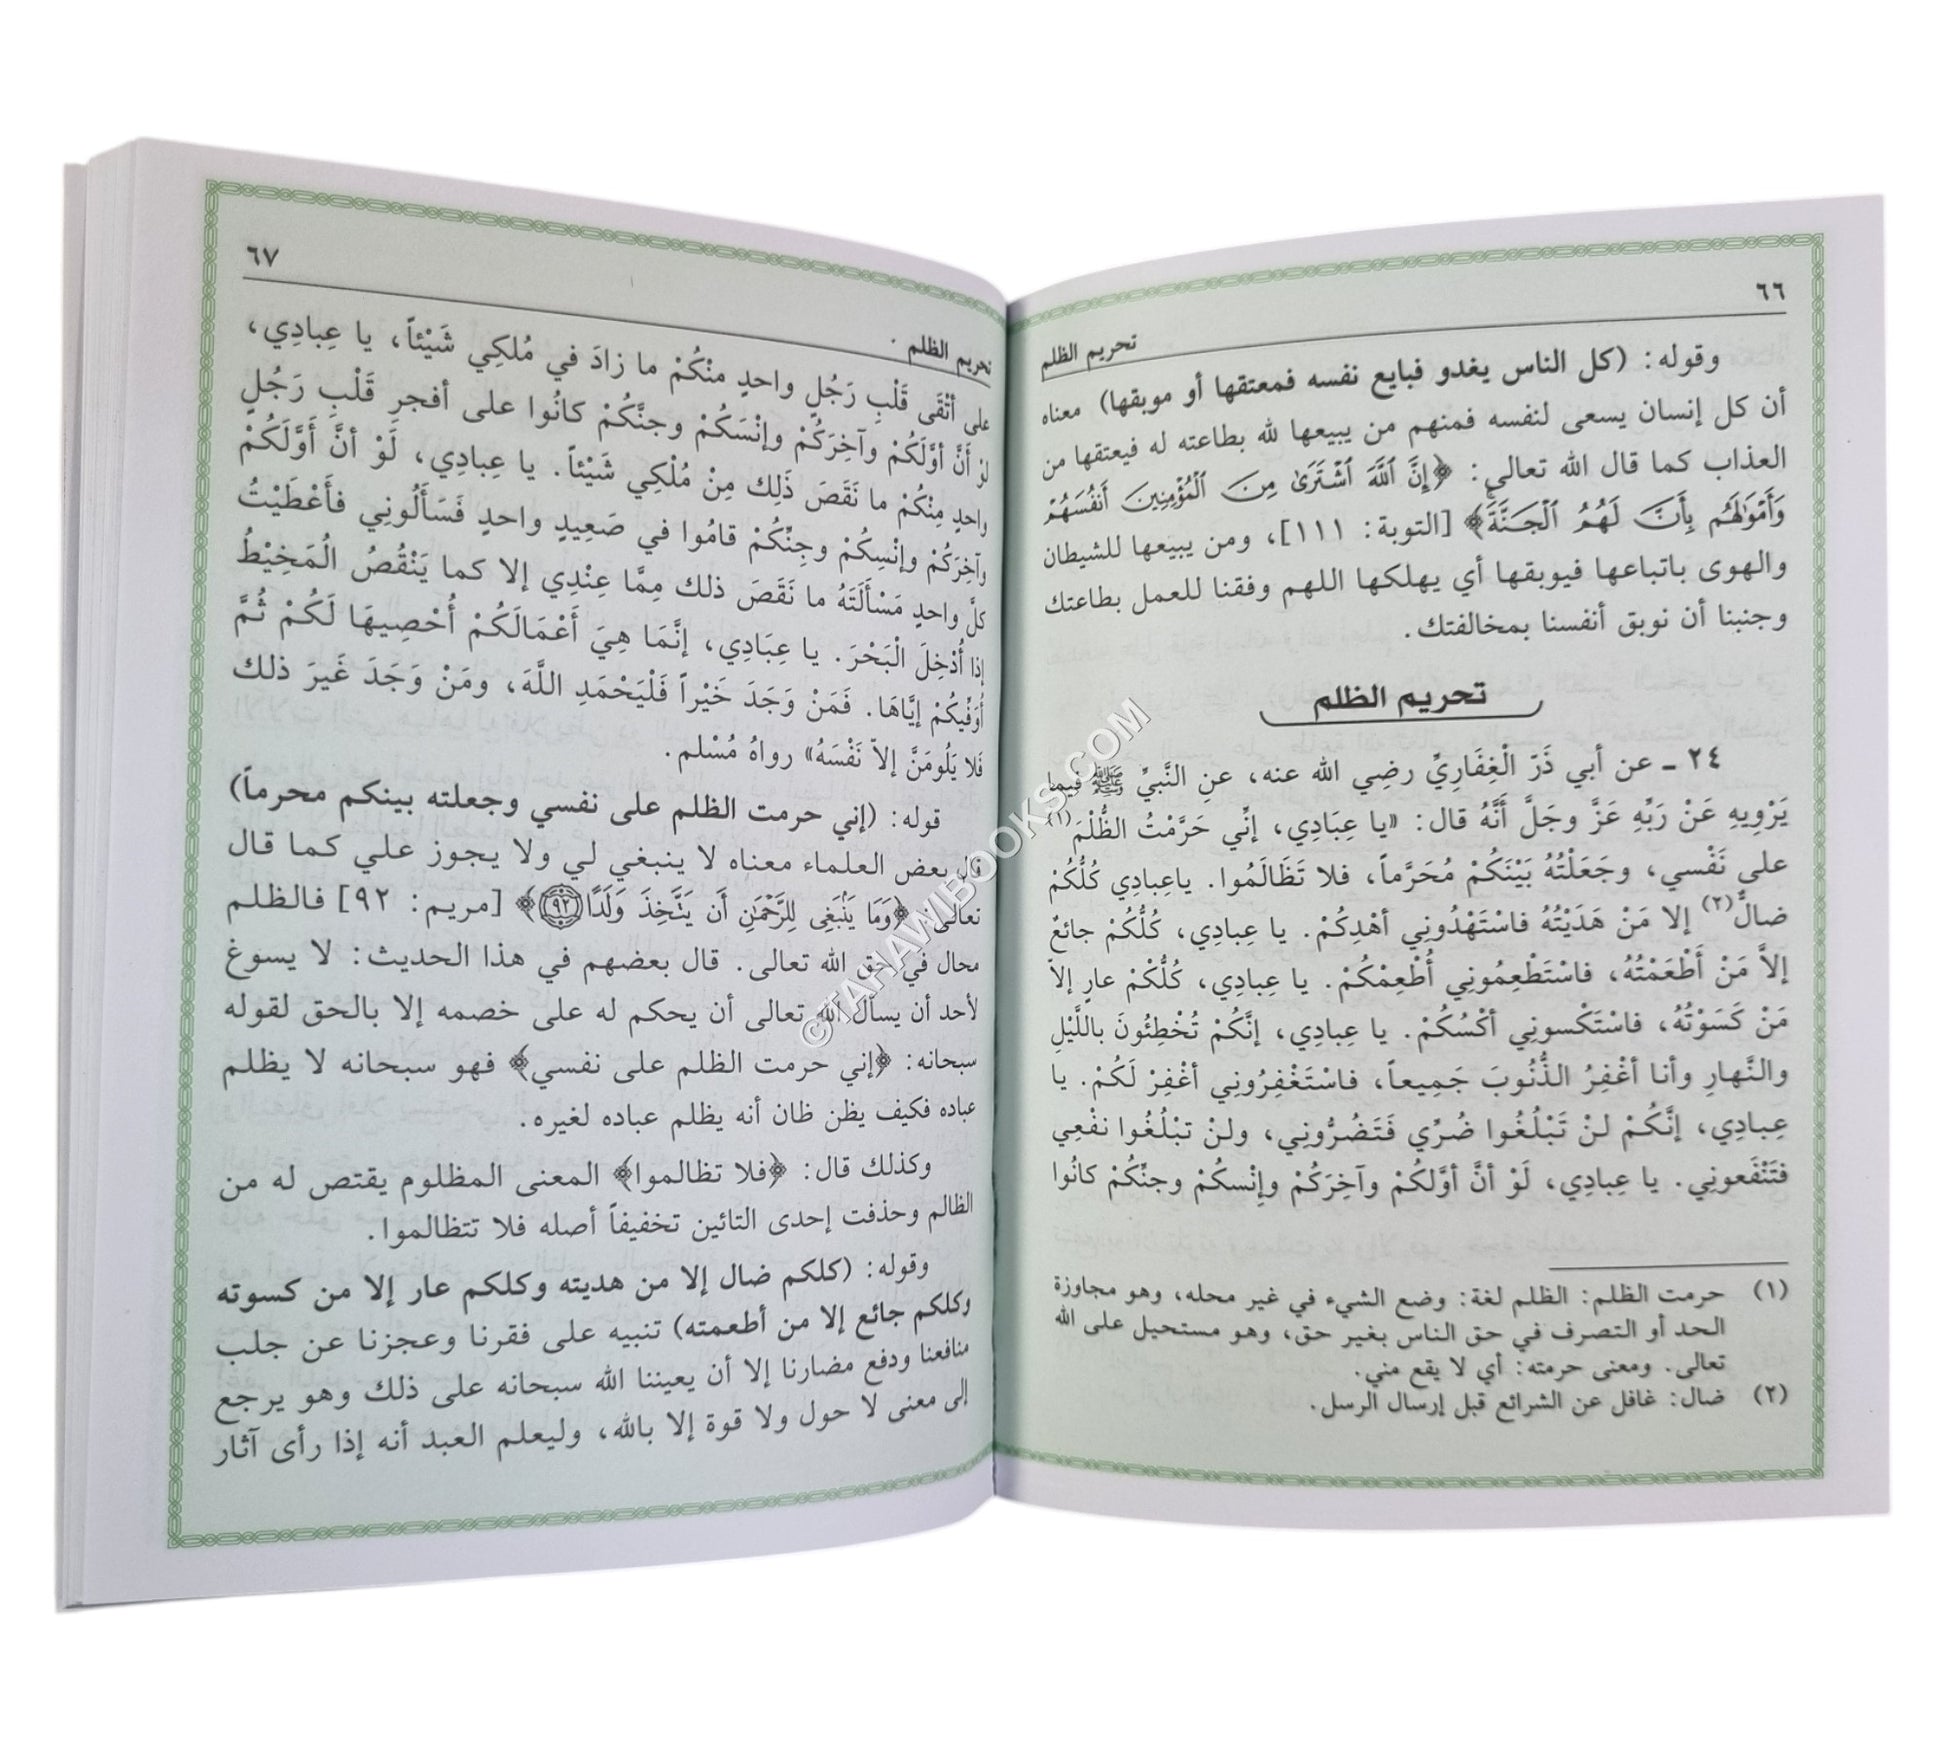 ٦٦
تحريم الظلم
وقوله: (كل الناس يغدو فبايع نفسه فمعتقها أو موبقها) معناه
أن كل إنسان يسعى لنفسه فمنهم من يبيعها لله بطاعته له فيعتقها من
العذاب كما قال الله تعالى: ﴿إِنَّ ٱللَّهَ ٱشْتَرَىٰ مِنَ ٱلْمُؤْمِنِينَ أَنفُسَهُمْ
وَأَمْوَٰلَهُم بِأَنَّ لَهُمُ ٱلْجَنَّةَ﴾ [التوبة: ١١١]، ومن يبيعها للشيطان
والهوى باتباعها فيوبقها أي يهلكها اللهم وفقنا للعمل بطاعتك
وجنبنا أن نوبق أنفسنا بمخالفتك.
تحريم الظلم
٢٤ ـ عن أبي ذَرّ الْغِفَارِيِّ رضِي الله عنه، عنِ النَّبيِّ ﷺ فِيما
يَرْوِيهِ عَنْ رَبِّهِ عَزَّ وجَلَّ أَنَّهُ قال: «يا عِبَادِي، إنِّي حَرَّمْتُ الظُّلْمَ(١)
على نَفْسي، وجَعَلْتُهُ بَيْنَكُمْ مُحَرَّماً، فلا تَظَالَمُوا. ياعِبادِي كُلُّكُمْ
ضالٌّ(٢) إلا مَنْ هَدَيْتُهُ فاسْتَهْدُونِي أهْدِكُمْ. يا عِبادِي، كُلُّكُمْ جائعٌ
إلاَّ مَنْ أَطْعَمْتُهُ، فاسْتَطْعِمُونِي أُطْعِمْكُمْ. يا عِبادِي، كُلُّكُمْ عارٍ إلاّ
مَنْ كَسَوْتُهُ، فاسْتَكْسونِي أكْسُكُمْ. يا عِبادِي، إنَّكُمْ تُخْطِئُونَ باللَّيْلِ
والنَّهارِ وأنا أغْفِرُ الذُّنُوبَ جَمِيعاً، فاسْتَغْفِرُونِي أغْفِرْ لَكُمْ. يا
عِبادِي، إنَّكُمْ لنْ تَبْلُغُوا ضُرِّي فَتَضُرُّونِي، ولنْ تبْلُغُوا نفْعِي
فتَنْفَعونِي. يا عِبادِي، لَوْ أنَّ أوَّلكُمْ وآخِرَكُمْ وإنْسكُمْ وجنِّكُمْ كانُوا
(١) حرمت الظلم: الظلم لغة: وضع الشيء في غير محله، وهو مجاوزة
الحد أو التصرف في حق الناس بغير حق، وهو مستحيل على الله
تعالى. ومعنى حرمته: أي لا يقع مني.
(٢) ضال: غافل عن الشرائع قبل إرسال الرسل.
٦٧
تحريم الظلم
على أتْقَى قَلْبِ رَجُلٍ واحدٍ منْكُمْ ما زادَ في مُلكِي شَيْئاً، يا عِبادِي،
لوْ أنَّ أوَّلَكُمْ وآخِرَكُمْ وإنْسَكُمْ وجنَّكُمْ كانُوا على أفجرِ قَلْبِ رَجُلٍ
واحدٍ مِنْكُمْ ما نَقَصَ ذَلِك مِنْ مُلْكِي شَيْئاً. يا عِبادِي، لَوْ أنَّ أَوَّلَكُمْ
وآخِرَكُمْ وإنْسِكُمْ وجِنِّكُمْ قامُوا في صَعِيدٍ واحدٍ فَسَأَلُونِي فأَعْطَيْتُ
كلَّ واحدٍ مَسْأَلَتَهُ ما نَقَصَ ذلك مِمَّا عِنْدِي إلا كما يَنْقُصُ الْمَخِيْطُ
إذا أُدْخِلَ الْبَحْرَ. يا عِبَادِي، إنَّمَا هِيَ أَعْمَالَكُمْ أُحْصِيهَا لَكُمْ ثُمَّ
أُوَفِّيكُمْ إيَّاهَا. فَمَنْ وَجَدَ خَيْراً فَلْيَحْمَدِ اللَّهَ، ومَنْ وَجَدَ غَيرَ ذلك
فَلا يَلُومَنَّ إلاّ نَفْسَهُ» رواهُ مُسْلم.
قوله: (إني حرمت الظلم على نفسي وجعلته بينكم محرماً)
قال بعض العلماء معناه لا ينبغي لي ولا يجوز علي كما قال
تعالى: ﴿وَمَا يَنۢبَغِى لِلرَّحْمَٰنِ أَن يَتَّخِذَ وَلَدًا ٩٢﴾ [مريم: ٩٢] فالظلم
محال في حق الله تعالى. قال بعضهم في هذا الحديث: لا يسوغ
لأحد أن يسأل الله تعالى أن يحكم له على خصمه إلا بالحق لقوله
سبحانه: ﴿إني حرمت الظلم على نفسي﴾ فهو سبحانه لا يظلم
عباده فكيف يظن ظان أنه يظلم عباده لغيره.
وكذلك قال: ﴿فلا تظالموا﴾ المعنى المظلوم يقتص له من
الظالم وحذفت إحدى التائين تخفيفاً أصله فلا تتظالموا.
وقوله: (كلكم ضال إلا من هديته وكلكم عار إلا من كسوته
وكلكم جائع إلا من أطعمته) تنبيه على فقرنا وعجزنا عن جلب
منافعنا ودفع مضارنا إلا أن يعيننا الله سبحانه على ذلك وهو يرجع
إلى معنى لا حول ولا قوة إلا بالله، وليعلم العبد أنه إذا رأى آثار
©TAHAWIBOOKS.COM